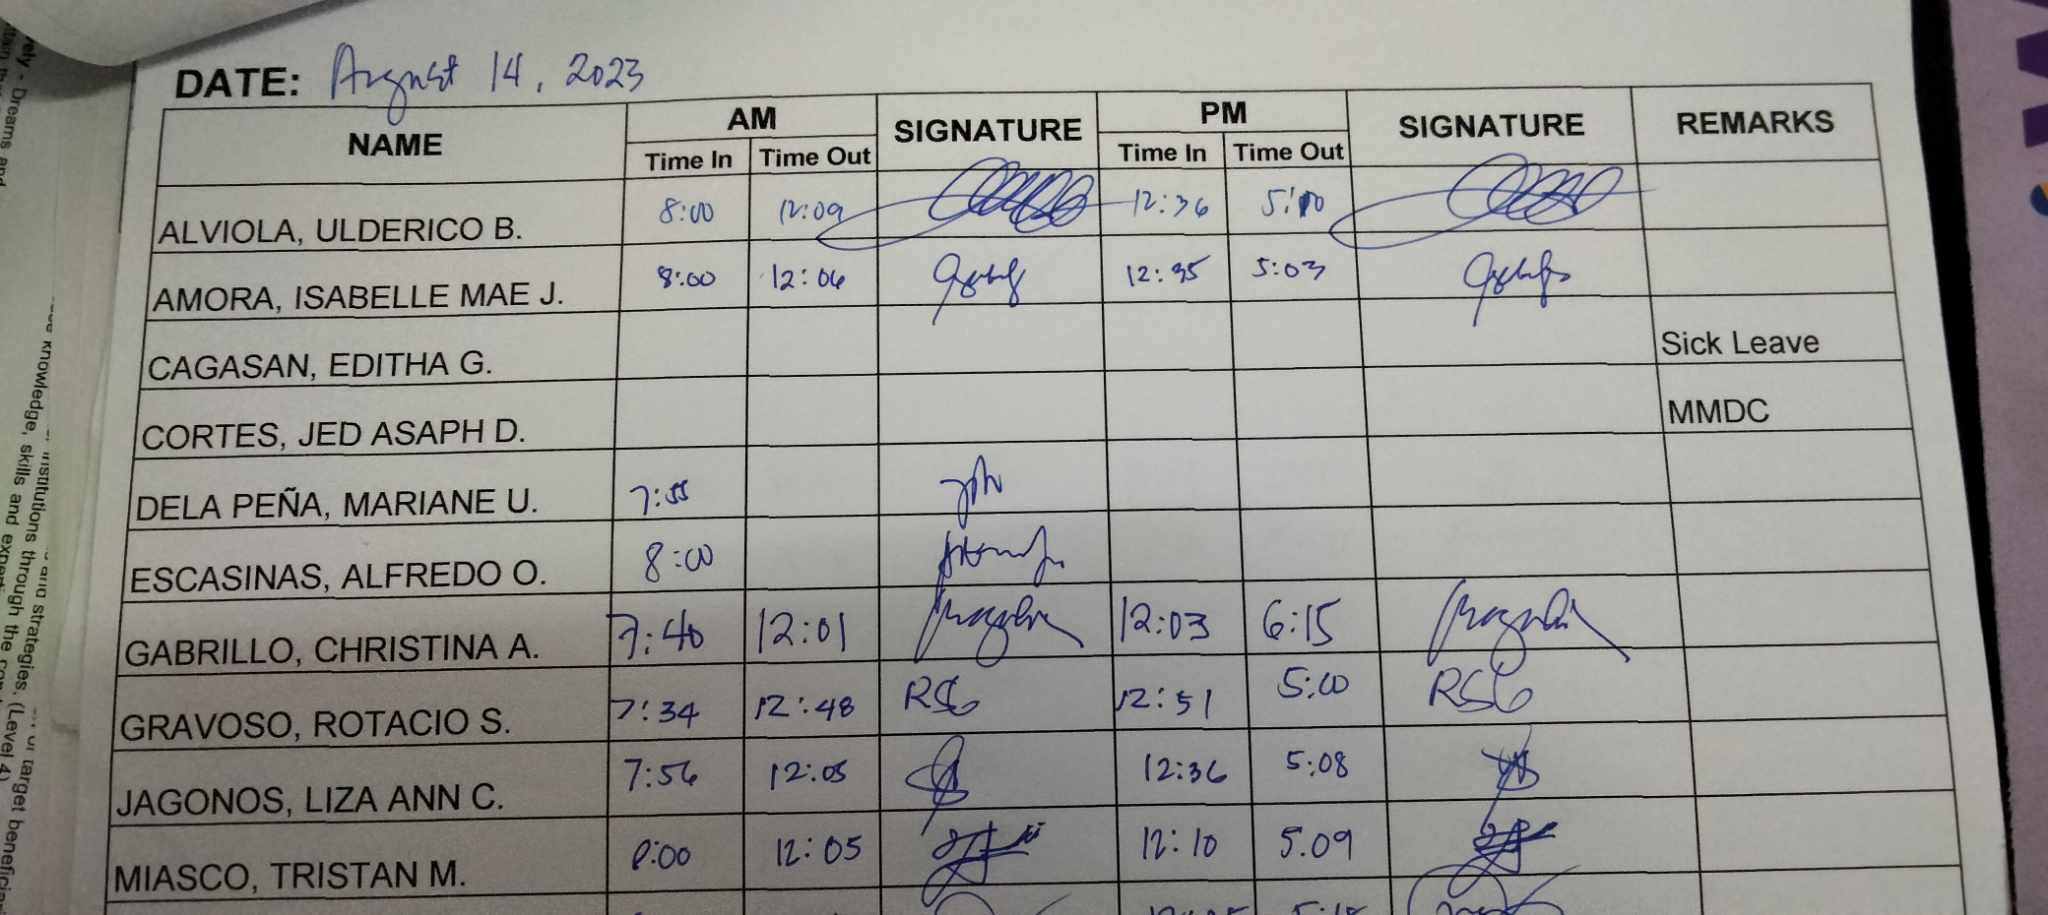 DATE: August 14, 2023
NAME AM SIGNATURE PM SIGNATURE REMARKS
Time In Time Out Time In Time Out
ALVIOLA, ULDERICO B. 8:00 12:09 12:36 5:10
AMORA, ISABELLE MAE J. 8:00 12:06 12:35 5:03
CAGASAN, EDITHA G. Sick Leave
CORTES, JED ASAPH D. MMDC
DELA PEÑA, MARIANE U. 7:55
ESCASINAS, ALFREDO O. 8:00
GABRILLO, CHRISTINA A. 7:40 12:01 12:03 6:15
GRAVOSO, ROTACIO S. 7:34 12:48 RSG 12:51 5:00 RSG
JAGONOS, LIZA ANN C. 7:56 12:05 12:36 5:08
MIASCO, TRISTAN M. 8:00 12:05 12:10 5.09
vely - Dreams and
knowledge, skills and
institutions through
and strategies.
target beneficiar
(Level 4)